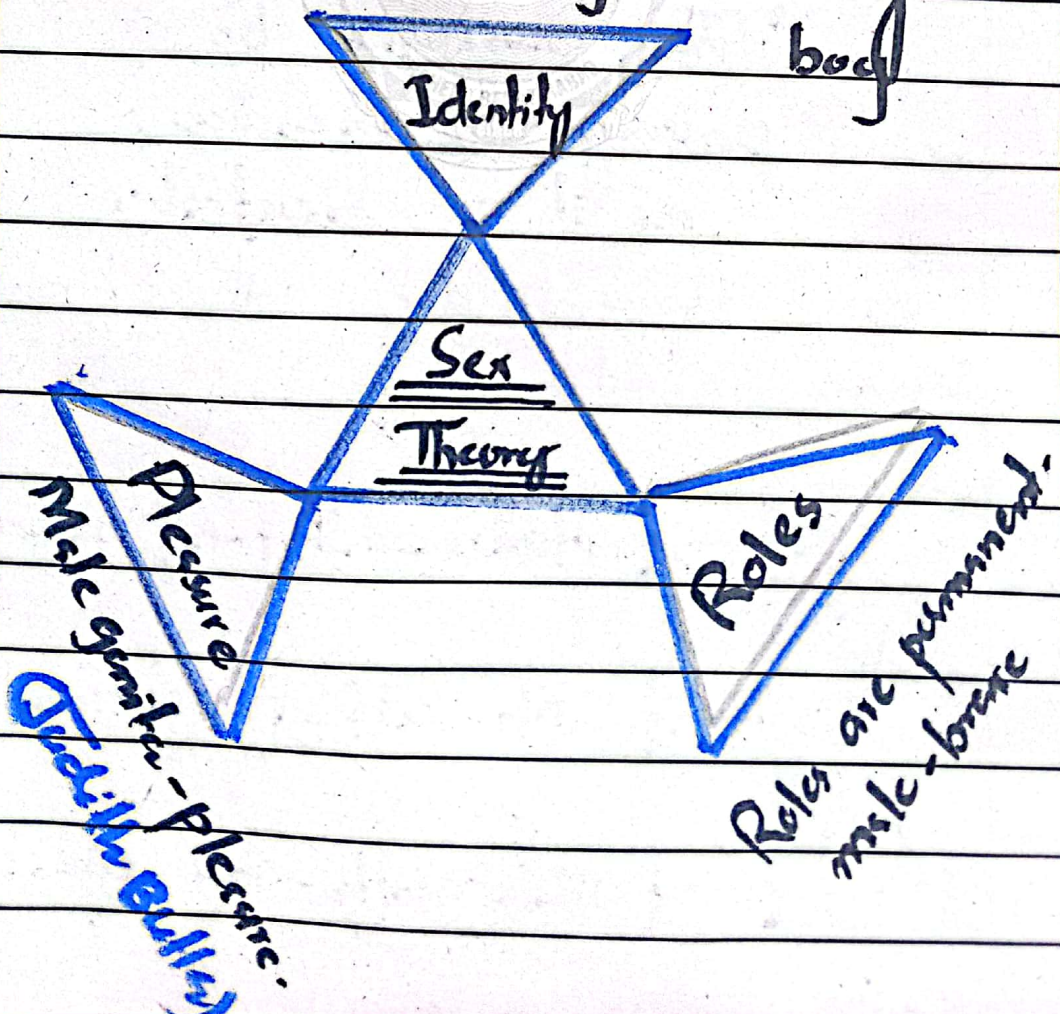 body
Identity
Sex
Theory
Pleasure
Male genita-Plesure.
Judith Butler
Roles
Roles are permanent.
male-brave